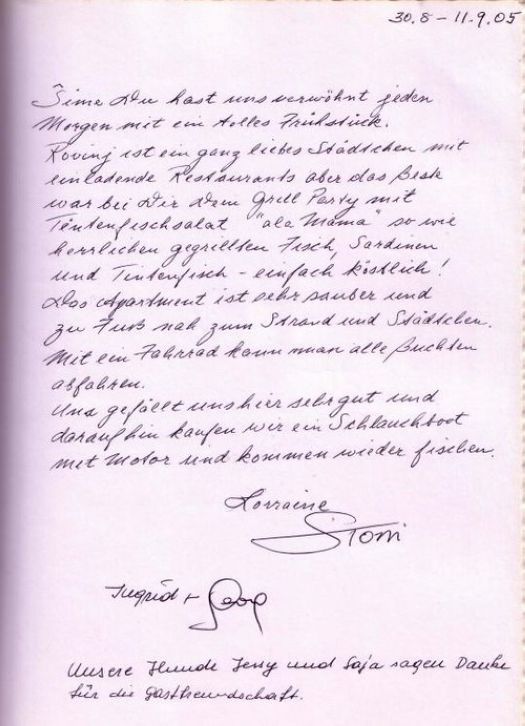 30.8 - 11.9.05
Šime Du hast uns verwöhnt jeden
Morgen mit ein tolles Frühstück.
Rovinj ist ein ganz liebes Städtchen mit
einladende Restaurants aber das Beste
war bei Dir Dein Grill Party mit
Tintenfischsalat "ala Mama" so wie
herrlichen gegrillten Fisch, Sardinen
und Tintenfisch - einfach köstlich!
Das Apartment ist sehr sauber und
zu Fuß nah zum Strand und Städtchen.
Mit ein Fahrrad kann man alle Buchten
abfahren.
Uns gefällt uns hier sehr gut und
daraufhin kaufen wir ein Schlauchboot
mit Motor und kommen wieder fischen.
Lorraine
Toni
Ingrid + Georg
Unsere Hunde Jenny und Saja sagen Danke
für die Gastfreundschaft.